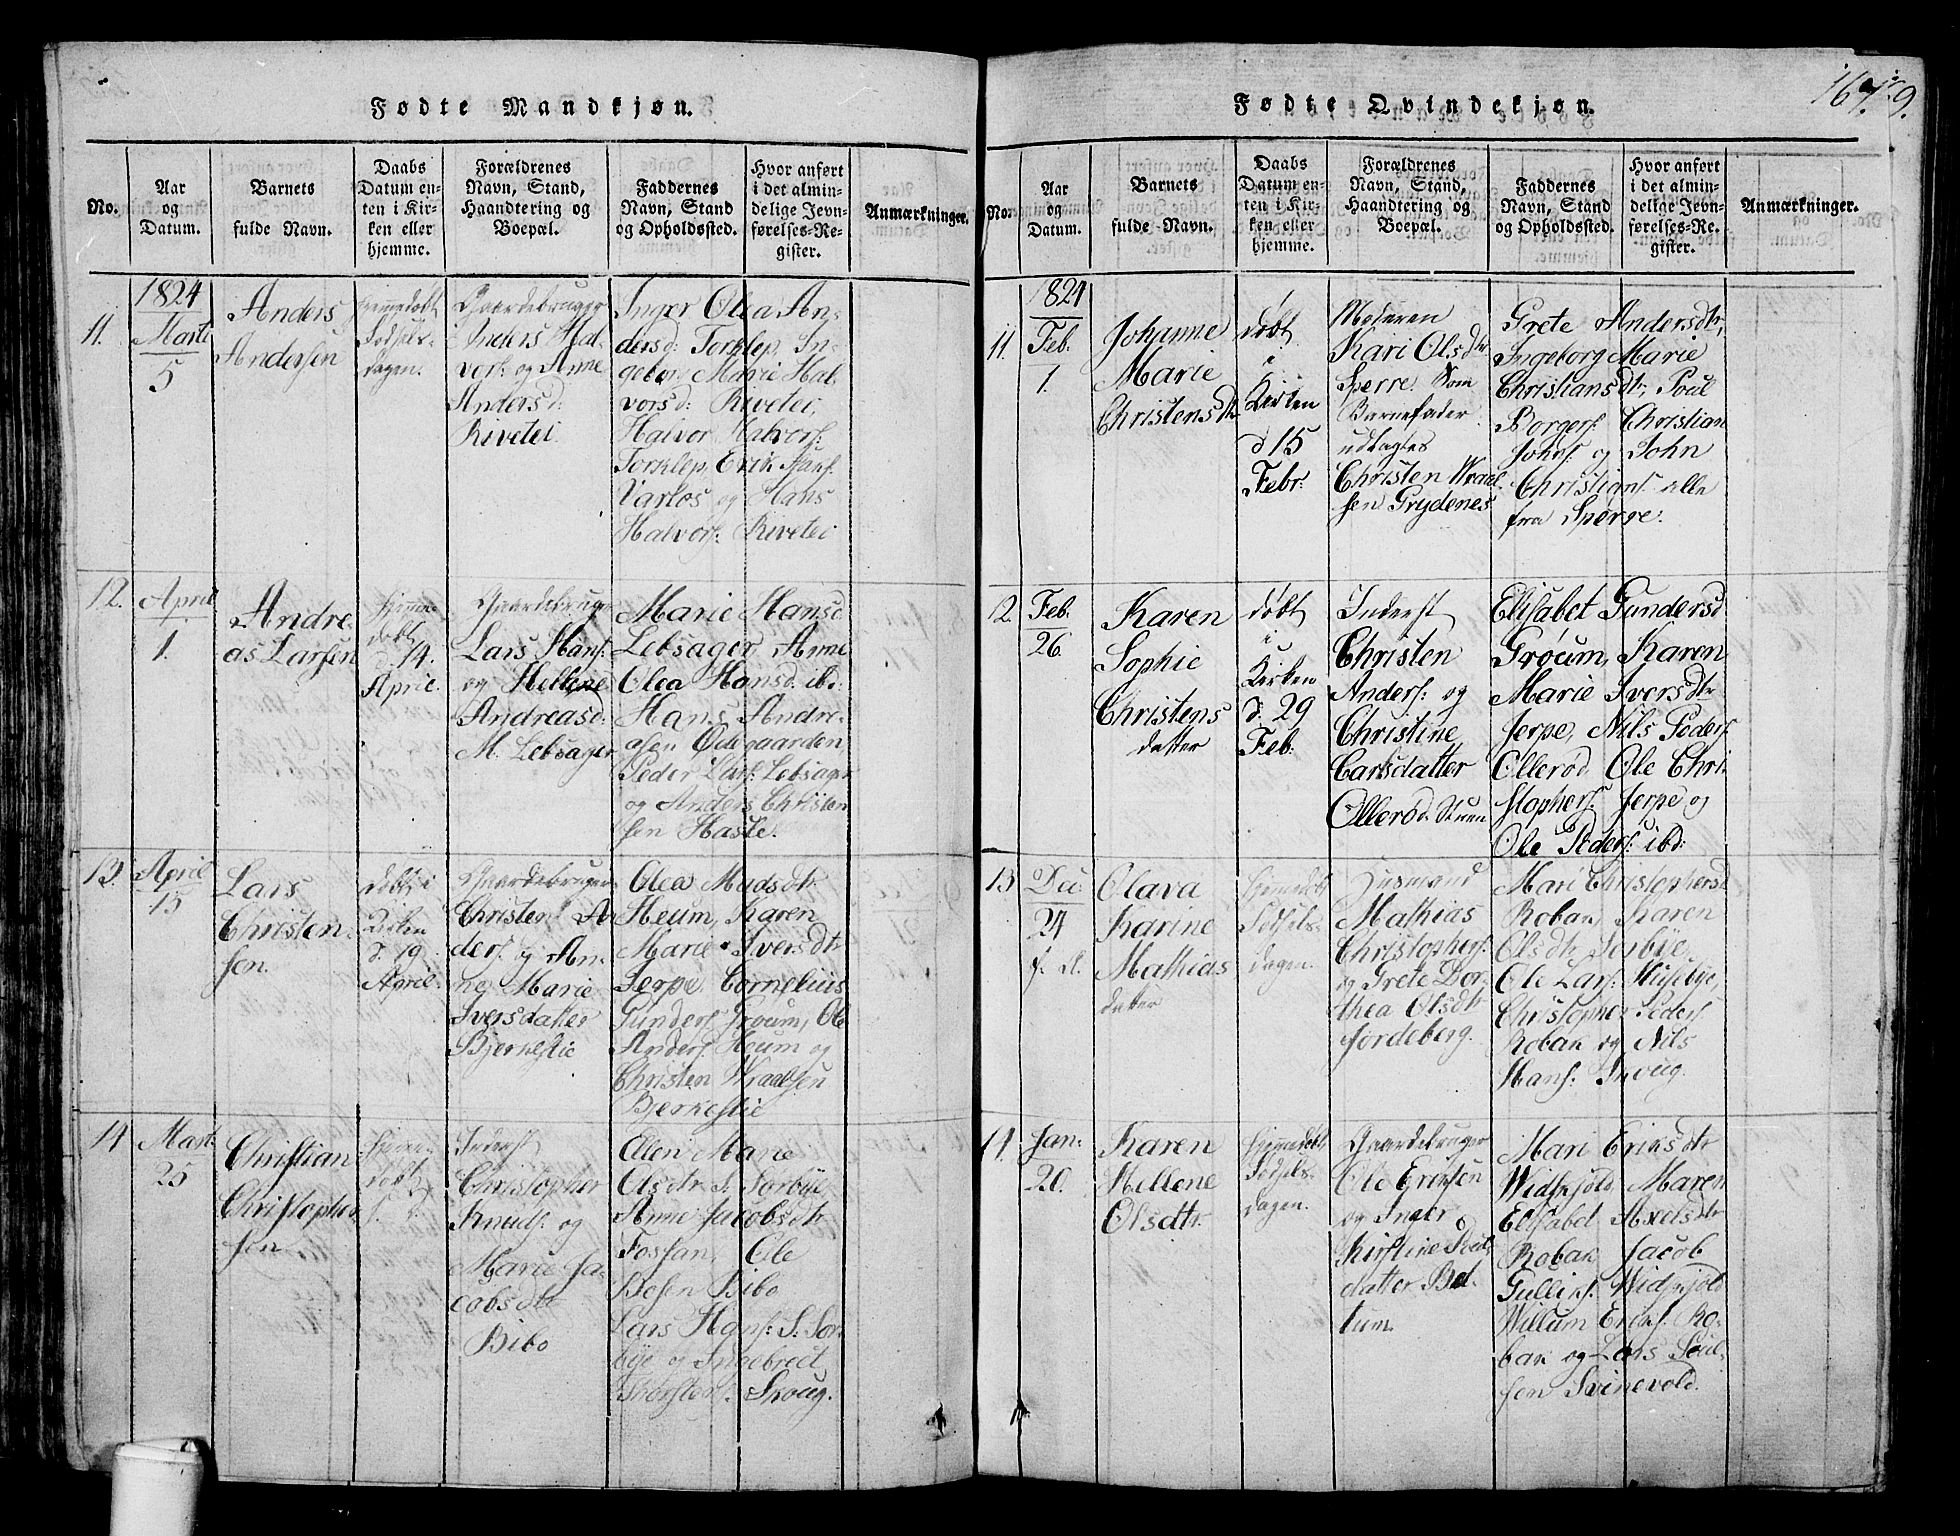 167.
9.
Fødte Mandkjøn.
No.
Aar
og
Datum.
Barnets
fulde Navn.
Daabs
Datum en-
ten i Kir-
ken eller
hjemme.
Forældrenes
Navn, Stand,
Haandtering og
Boepæl.
Faddernes
Navn, Stand
og Opholdssted.
Hvor anført
i det almin-
delige Jevn-
førelses-Re-
gister.
Anmærkninger.
11.
1824
Marti
5
Anders
Andersen
Hjemmedøbt
Fødsels-
dagen.
Gaardebruger
Anders Hal-
vors: og Anne
Andersd:
Rivetei
Inger Olea An-
dersd: Torklep, In-
geborg Marie Hal-
vorsd: Rivetei,
Halvor Halvors:
Torklep, Erik Hans:
Varlos og Hans
Halvors: Rivetei
12.
April
1.
Andre
as Larsen
Hjemme-
døbt
d. 14.
April.
Gaardebruger
Lars Hans:
og Hellene
Andreasd:
M. Lebsager
Marie Hansd
Lebsager, Anne
Olea Hansd. ibd:
Hans Andre-
asen Ødegaarden
Peder Lars: Lebsager
og Anders Christen
sen Hasle.
13.
April
15
Lars
Christen-
sen.
Døbt i
Kirken
d. 19
April.
Gaardebruger
Christen An
ders: og An-
ne Marie
Iversdatter
Bjerkestie
Olea Madsdtr
Heum, Karen
Marie Iversdtr
Jerpe Cornelius
Gunders: Grøum, Ole
Anders: Heum og
Christen Wraalsen
Bjerkestie
14
Mart:
25
Christian
Christopher
sen
Hjemme-
døbt
f. d.
Inderst
Christopher
Knuds: og
Marie Ja-
cobsdtr
Bibo
Elen Marie
Olsdtr S. Sørbye,
Anne Jacobsdtr
Fossan, Ole
Boesen Bibo
Lars Hans: S: Sør-
bye og Ingebrect
Thorsters: Skoug.
Fødte Qvindekjøn.
No.
Aar
og
Datum.
Barnets
fulde Navn.
Daabs
Datum en-
ten i Kir-
ken eller
hjemme.
Forældrenes
Navn, Stand,
Haandtering og
Boepæl.
Faddernes
Navn, Stand
og Opholdssted.
Hvor anført
i det almin-
delige Jevn-
førelses-Re-
gister.
Anmærkninger.
11.
1824
Feb.
1.
Johanne
Marie
Christensdtr
døbt
i
Kirken
d 15
Febr:
Moderen
Kari Olsdtr
Sperre. Som
Barnefader
udlagtes
Christen Wraal-
sen Grydenes
Grete Andersdtr,
Ingeborg Marie
Christiansdtr, Poul
Borgers: Christian
Johns: og John
Christians: alle
fra Sperre.
12.
Feb.
26.
Karen
Sophie
Christens
datter
døbt
i
Kirken
d. 29
Feb:
Inderst
Christen
Anders: og
Christine
Larsdatter
Ollerød Stuen
Elisabet Gundersd
Grøum, Karen
Marie Iversdtr
Jerpe, Nils Peders:
Ollerød Ole Chri-
stophers: Jerpe og
Ole Peders: ibd:
13
Dec:
24
f. A.
Olava
Karine
Mathias
datter
Hjemmedøbt
Fødsels-
dagen.
Husmand
Mathias
Christophers:
og Grete Dor-
thea Olsdtr
Jordeberg.
Mari Christophersd
Roban, Karen
Olsdtr Sørbye,
Ole Lars: Huseby,
Christopher Peders:
Roban og Nils
Hans: Skoug.
14.
Jan:
20.
Karen
Hellene
Olsdtr.
Hjemmedøbt
Fødsels-
dagen.
Gaardebruger
Ole Eriksen
og Inger
Kirstine
datter Bel
tum.
Mari Eriksdtr
Widskjold Maren
Elisabet Axelsdtr
Roban, Jacob
Gulliks: Widskjold
Willum Eriks: Ro-
ban og Lars Poul-
sen Svinevold.